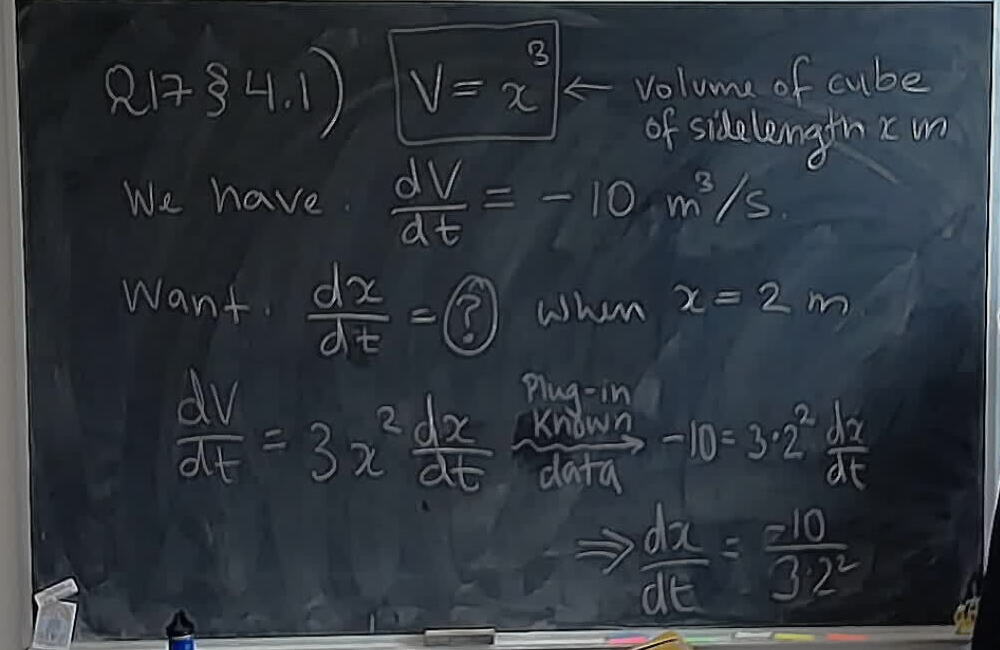 Q17 § 4.1) V = x³ ← volume of cube
of sidelength x m
We have. dV/dt = -10 m³/s.
Want. dx/dt = ? when x = 2 m
dV/dt = 3x² dx/dt Plug-in Known data → -10 = 3·2² dx/dt
⇒ dx/dt = -10/3·2²